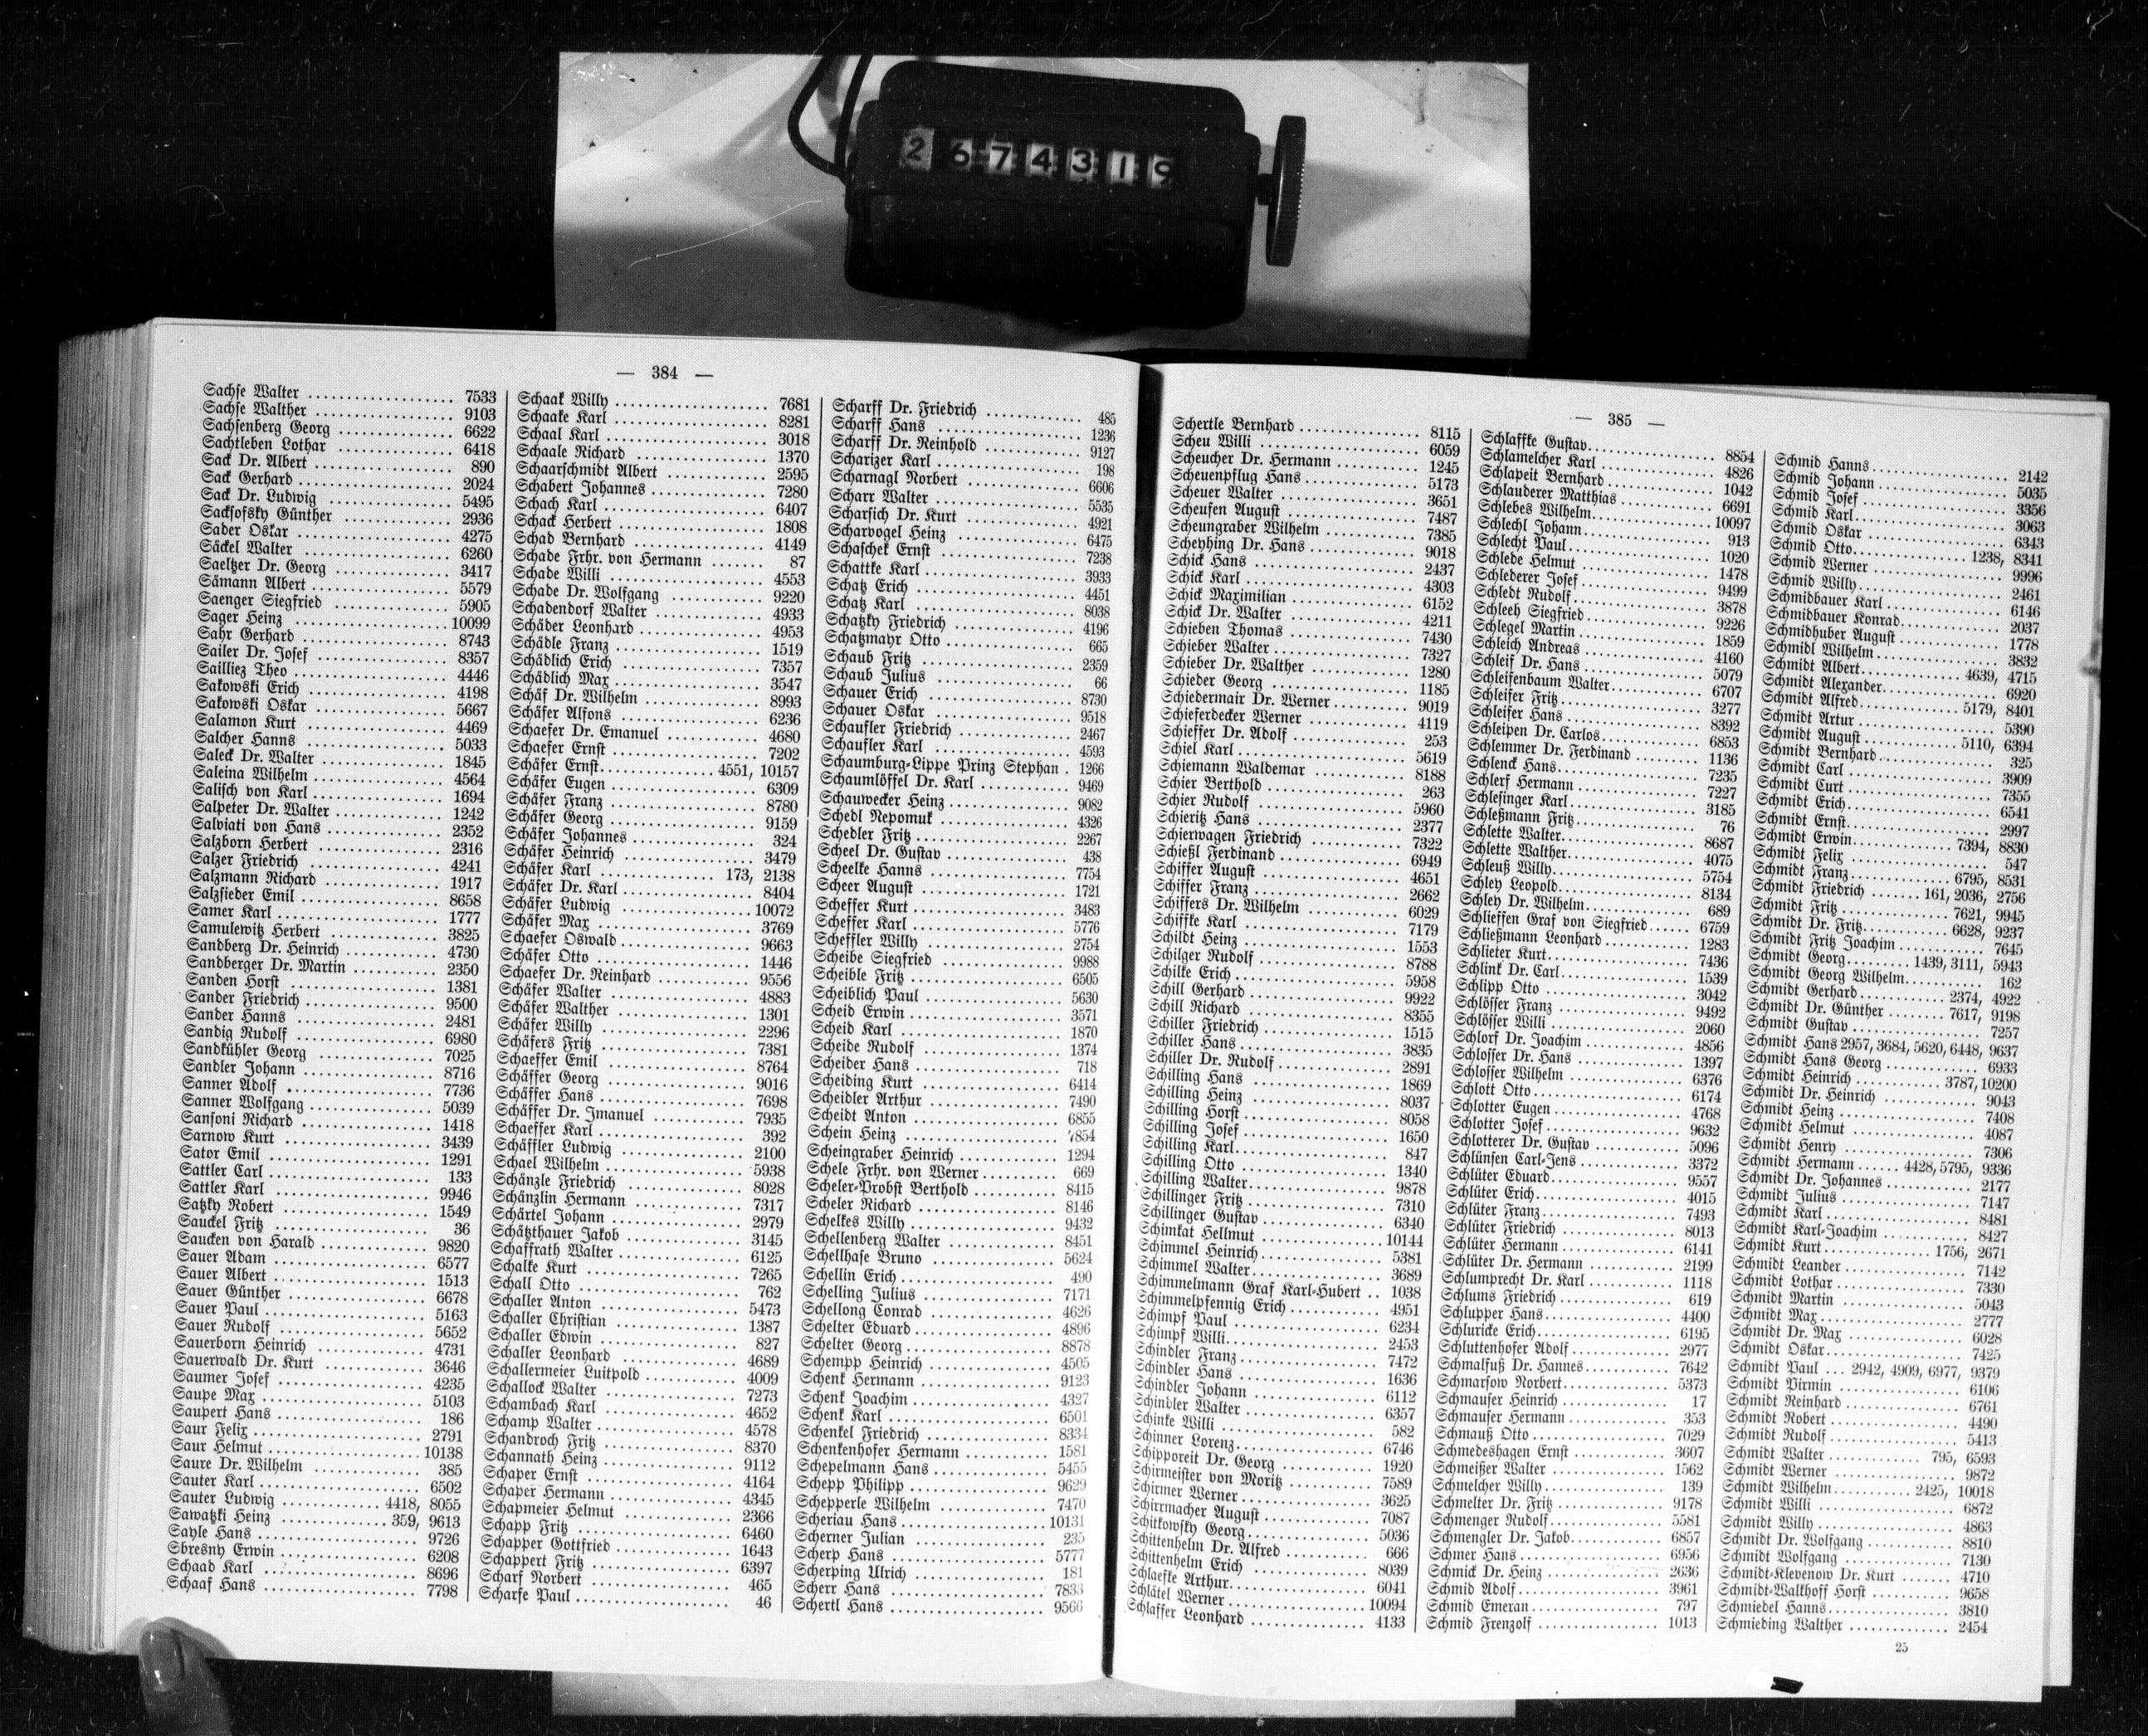 2674319
— 384 —
Sachse Walter 7533
Sachse Walther 9103
Sachsenberg Georg 6622
Sachtleben Lothar 6418
Sack Dr. Albert 890
Sack Gerhard 2024
Sack Dr. Ludwig 5495
Sacksofsky Günther 2936
Sader Oskar 4275
Säckel Walter 6260
Saeltzer Dr. Georg 3417
Sämann Albert 5579
Saenger Siegfried 5905
Sager Heinz 10099
Sahr Gerhard 8743
Sailer Dr. Josef 8357
Sailliez Theo 4446
Sakowski Erich 4198
Sakowski Oskar 5667
Salamon Kurt 4469
Salcher Hanns 5033
Saleck Dr. Walter 1845
Saleina Wilhelm 4564
Salisch von Karl 1694
Salpeter Dr. Walter 1242
Salviati von Hans 2352
Salzborn Herbert 2316
Salzer Friedrich 4241
Salzmann Richard 1917
Salzsieder Emil 8658
Samer Karl 1777
Samulewitz Herbert 3825
Sandberg Dr. Heinrich 4730
Sandberger Dr. Martin 2350
Sanden Horst 1381
Sander Friedrich 9500
Sander Hanns 2481
Sandig Rudolf 6980
Sandkühler Georg 7025
Sandler Johann 8716
Sanner Adolf 7736
Sanner Wolfgang 5039
Sansoni Richard 1418
Sarnow Kurt 3439
Sator Emil 1291
Sattler Carl 133
Sattler Karl 9946
Satzky Robert 1549
Sauckel Fritz 36
Saucken von Harald 9820
Sauer Adam 6577
Sauer Albert 1513
Sauer Günther 6678
Sauer Paul 5163
Sauer Rudolf 5652
Sauerborn Heinrich 4731
Sauerwald Dr. Kurt 3646
Saumer Josef 4235
Saupe Max 5103
Saupert Hans 186
Saur Felix 2791
Saur Helmut 10138
Saure Dr. Wilhelm 385
Sauter Karl 6502
Sauter Ludwig 4418, 8055
Sawatzki Heinz 359, 9613
Sayle Hans 9726
Sbresny Erwin 6208
Schaad Karl 8696
Schaaf Hans 7798
Schaak Willy 7681
Schaake Karl 8281
Schaal Karl 3018
Schaale Richard 1370
Schaarschmidt Albert 2595
Schabert Johannes 7280
Schach Karl 6407
Schack Herbert 1808
Schad Bernhard 4149
Schade Frhr. von Hermann 87
Schade Willi 4553
Schade Dr. Wolfgang 9220
Schadendorf Walter 4933
Schäder Leonhard 4953
Schädle Franz 1519
Schädlich Erich 7357
Schädlich Max 3547
Schäf Dr. Wilhelm 8993
Schäfer Alfons 6236
Schaefer Dr. Emanuel 4680
Schaefer Ernst 7202
Schäfer Ernst 4551, 10157
Schäfer Eugen 6309
Schäfer Franz 8780
Schäfer Georg 9159
Schäfer Johannes 324
Schäfer Heinrich 3479
Schäfer Karl 173, 2138
Schäfer Dr. Karl 8404
Schäfer Ludwig 10072
Schäfer Max 3769
Schaefer Oswald 9663
Schäfer Otto 1446
Schaefer Dr. Reinhard 9556
Schäfer Walter 4883
Schäfer Walther 1301
Schäfer Willy 2296
Schäfers Fritz 7381
Schaeffer Emil 8764
Schäffer Georg 9016
Schäffer Hans 7698
Schäffer Dr. Imanuel 7935
Schaeffer Karl 392
Schäffler Ludwig 2100
Schael Wilhelm 5938
Schänzle Friedrich 8028
Schänzlin Hermann 7317
Schärtel Johann 2979
Schätzthauer Jakob 3145
Schaffrath Walter 6125
Schalke Kurt 7265
Schall Otto 762
Schaller Anton 5473
Schaller Christian 1387
Schaller Edwin 827
Schaller Leonhard 4689
Schallermeier Luitpold 4009
Schallock Walter 7273
Schambach Karl 4652
Schamp Walter 4578
Schandroch Fritz 8370
Schannath Heinz 9112
Schaper Ernst 4164
Schaper Hermann 4345
Schapmeier Helmut 2366
Schapp Fritz 6460
Schapper Gottfried 1643
Schappert Fritz 6397
Scharf Norbert 465
Scharfe Paul 46
Scharff Dr. Friedrich 485
Scharff Hans 1236
Scharff Dr. Reinhold 9127
Scharizer Karl 198
Scharnagl Norbert 6606
Scharr Walter 5535
Scharsich Dr. Kurt 4921
Scharvogel Heinz 6475
Schaschek Ernst 7238
Schattke Karl 3933
Schatz Erich 4451
Schatz Karl 8038
Schatzky Friedrich 4196
Schatzmayr Otto 665
Schaub Fritz 2359
Schaub Julius 66
Schauer Erich 8730
Schauer Oskar 9518
Schaufler Friedrich 2467
Schaufler Karl 4593
Schaumburg-Lippe Prinz Stephan 1266
Schaumlöffel Dr. Karl 9469
Schauwecker Heinz 9082
Schedl Nepomuk 4326
Schedler Fritz 2267
Scheel Dr. Gustav 438
Scheelke Hanns 7754
Scheer August 1721
Scheffer Kurt 3483
Scheffer Karl 5776
Scheffler Willy 2754
Scheibe Siegfried 9988
Scheible Fritz 6505
Scheiblich Paul 5630
Scheid Erwin 3571
Scheid Karl 1870
Scheide Rudolf 1374
Scheider Hans 718
Scheiding Kurt 6414
Scheidler Arthur 7490
Scheidt Anton 6855
Schein Heinz 7854
Scheingraber Heinrich 1294
Schele Frhr. von Werner 669
Scheler-Probst Berthold 8415
Scheler Richard 8146
Schelkes Willy 9432
Schellenberg Walter 8451
Schellhase Bruno 5624
Schellin Erich 490
Schelling Julius 7171
Schellong Conrad 4626
Schelter Eduard 4896
Schelter Georg 8878
Schempp Heinrich 4505
Schenk Hermann 9123
Schenk Joachim 4327
Schenk Karl 6501
Schenkel Friedrich 8334
Schenkenhofer Hermann 1581
Schepelmann Hans 5455
Schepp Philipp 9629
Schepperle Wilhelm 7470
Scheriau Hans 10131
Scherner Julian 235
Scherp Hans 5777
Scherping Ulrich 181
Scherr Hans 7833
Schertl Hans 9566
— 385 —
Schertle Bernhard 8115
Scheu Willi 6059
Scheucher Dr. Hermann 1245
Scheuenpflug Hans 5173
Scheuer Walter 3651
Scheufen August 7487
Scheungraber Wilhelm 7385
Scheyhing Dr. Hans 9018
Schick Hans 2437
Schick Karl 4303
Schick Maximilian 6152
Schick Dr. Walter 4211
Schieben Thomas 7430
Schieber Walter 7327
Schieber Dr. Walther 1280
Schieder Georg 1185
Schiedermair Dr. Werner 9019
Schieferdecker Werner 4119
Schieffer Dr. Adolf 253
Schiel Karl 5619
Schiemann Waldemar 8188
Schier Berthold 263
Schier Rudolf 5960
Schieritz Hans 2377
Schierwagen Friedrich 7322
Schießl Ferdinand 6949
Schiffer August 4651
Schiffer Franz 2662
Schiffers Dr. Wilhelm 6029
Schiffke Karl 7179
Schildt Heinz 1553
Schilger Rudolf 8788
Schilke Erich 5958
Schill Gerhard 9922
Schill Richard 8355
Schiller Friedrich 1515
Schiller Hans 3835
Schiller Dr. Rudolf 2891
Schilling Hans 1869
Schilling Heinz 8037
Schilling Horst 8058
Schilling Josef 1650
Schilling Karl 847
Schilling Otto 1340
Schilling Walter 9878
Schillinger Fritz 7310
Schillinger Gustav 6340
Schimkat Hellmut 10144
Schimmel Heinrich 5381
Schimmel Walter 3689
Schimmelmann Graf Karl-Hubert 1038
Schimmelpfennig Erich 4951
Schimpf Paul 6234
Schimpf Willi 2453
Schindler Franz 7472
Schindler Hans 1636
Schindler Johann 6112
Schindler Walter 6357
Schinke Willi 582
Schinner Lorenz 6746
Schipporeit Dr. Georg 1920
Schirmeister von Moritz 7589
Schirmer Werner 3625
Schirrmacher August 7087
Schitkowsky Georg 5036
Schittenhelm Dr. Alfred 666
Schittenhelm Erich 8039
Schlaefke Arthur 6041
Schlätel Werner 10094
Schlaffer Leonhard 4133
Schlaffke Gustav 8854
Schlamelcher Karl 4826
Schlapeit Bernhard 1042
Schlauderer Matthias 6691
Schlebes Wilhelm 10097
Schlechl Johann 913
Schlecht Paul 1020
Schlede Helmut 1478
Schlederer Josef 9499
Schledt Rudolf 3878
Schleeh Siegfried 9226
Schlegel Martin 1859
Schleich Andreas 4160
Schleif Dr. Hans 5079
Schleifenbaum Walter 6707
Schleifer Fritz 3277
Schleifer Hans 8392
Schleipen Dr. Carlos 6853
Schlemmer Dr. Ferdinand 1136
Schlenck Hans 7235
Schlerf Hermann 7227
Schlesinger Karl 3185
Schleßmann Fritz 76
Schlette Walter 8687
Schlette Walther 4075
Schleuß Willy 5754
Schley Leopold 8134
Schley Dr. Wilhelm 689
Schlieffen Graf von Siegfried 6759
Schließmann Leonhard 1283
Schlieter Kurt 7436
Schlink Dr. Carl 1539
Schlipp Otto 3042
Schlösser Franz 9492
Schlösser Willi 2060
Schlorf Dr. Joachim 4856
Schlosser Dr. Hans 1397
Schlosser Wilhelm 6376
Schlott Otto 6174
Schlotter Eugen 4768
Schlotter Josef 9632
Schlotterer Dr. Gustav 5096
Schlünsen Carl-Jens 3372
Schlüter Eduard 9557
Schlüter Erich 4015
Schlüter Franz 7493
Schlüter Friedrich 8013
Schlüter Hermann 6141
Schlüter Dr. Hermann 2199
Schlumprecht Dr. Karl 1118
Schlums Friedrich 619
Schlupper Hans 4400
Schluricke Erich 6195
Schluttenhofer Adolf 2977
Schmalfuß Dr. Hannes 7642
Schmarsow Norbert 5373
Schmauser Heinrich 17
Schmauser Hermann 353
Schmauß Otto 7029
Schmedeshagen Ernst 3607
Schmeißer Walter 1562
Schmelcher Willy 139
Schmelter Dr. Fritz 9178
Schmenger Rudolf 5581
Schmengler Dr. Jakob 6857
Schmer Hans 6956
Schmick Dr. Heinz 2636
Schmid Adolf 3961
Schmid Emeran 797
Schmid Frenzolf 1013
Schmid Hanns 2142
Schmid Johann 5035
Schmid Josef 3356
Schmid Karl 3063
Schmid Oskar 6343
Schmid Otto 1238, 8341
Schmid Werner 9996
Schmid Willy 2461
Schmidbauer Karl 6146
Schmidbauer Konrad 2037
Schmidhuber August 1778
Schmidl Wilhelm 3832
Schmidt Albert 4639, 4715
Schmidt Alexander 6920
Schmidt Alfred 5179, 8401
Schmidt Artur 5390
Schmidt August 5110, 6394
Schmidt Bernhard 325
Schmidt Carl 3909
Schmidt Curt 7355
Schmidt Erich 6541
Schmidt Ernst 2997
Schmidt Erwin 7394, 8830
Schmidt Felix 547
Schmidt Franz 6795, 8531
Schmidt Friedrich 161, 2036, 2756
Schmidt Fritz 7621, 9945
Schmidt Dr. Fritz 6628, 9237
Schmidt Fritz Joachim 7645
Schmidt Georg 1439, 3111, 5943
Schmidt Georg Wilhelm 162
Schmidt Gerhard 2374, 4922
Schmidt Dr. Günther 7617, 9198
Schmidt Gustav 7257
Schmidt Hans 2957, 3684, 5620, 6448, 9637
Schmidt Hans Georg 6933
Schmidt Heinrich 3787, 10200
Schmidt Dr. Heinrich 9043
Schmidt Heinz 7408
Schmidt Helmut 4087
Schmidt Henry 7306
Schmidt Hermann 4428, 5795, 9336
Schmidt Dr. Johannes 2177
Schmidt Julius 7147
Schmidt Karl 8481
Schmidt Karl-Joachim 8427
Schmidt Kurt 1756, 2671
Schmidt Leander 7142
Schmidt Lothar 7330
Schmidt Martin 5043
Schmidt Max 2777
Schmidt Dr. Max 6028
Schmidt Oskar 7425
Schmidt Paul 2942, 4909, 6977, 9379
Schmidt Pirmin 6106
Schmidt Reinhard 6761
Schmidt Robert 4490
Schmidt Rudolf 5413
Schmidt Walter 795, 6593
Schmidt Werner 9872
Schmidt Wilhelm 2425, 10018
Schmidt Willi 6872
Schmidt Willy 4863
Schmidt Dr. Wolfgang 8810
Schmidt Wolfgang 7130
Schmidt-Klevenow Dr. Kurt 4710
Schmidt-Walkhoff Horst 9658
Schmiedel Hanns 3810
Schmieding Walther 2454
25